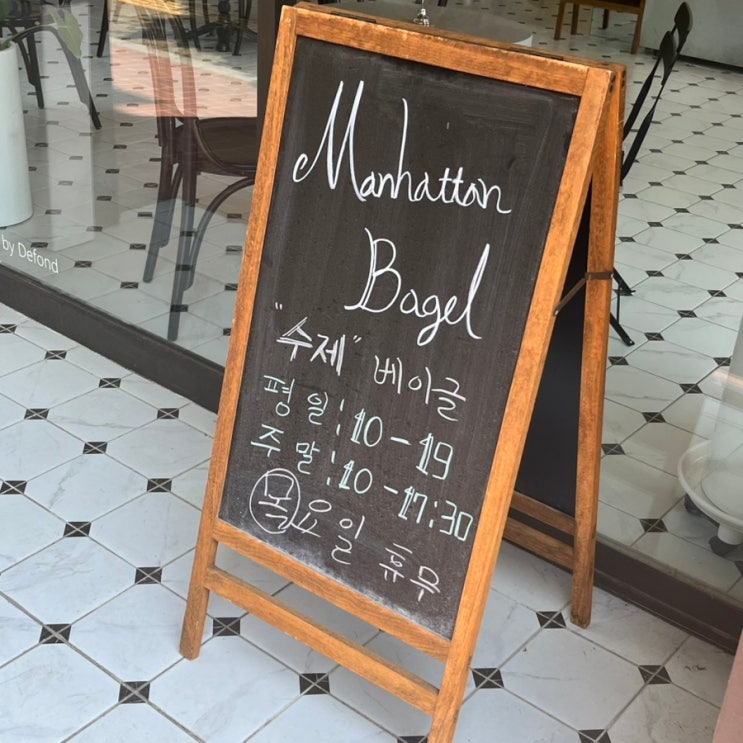 Manhattan
Bagel
"수제" 베이글
평일: 10-19
주말: 10-17:30
목요일 휴무
by Defond